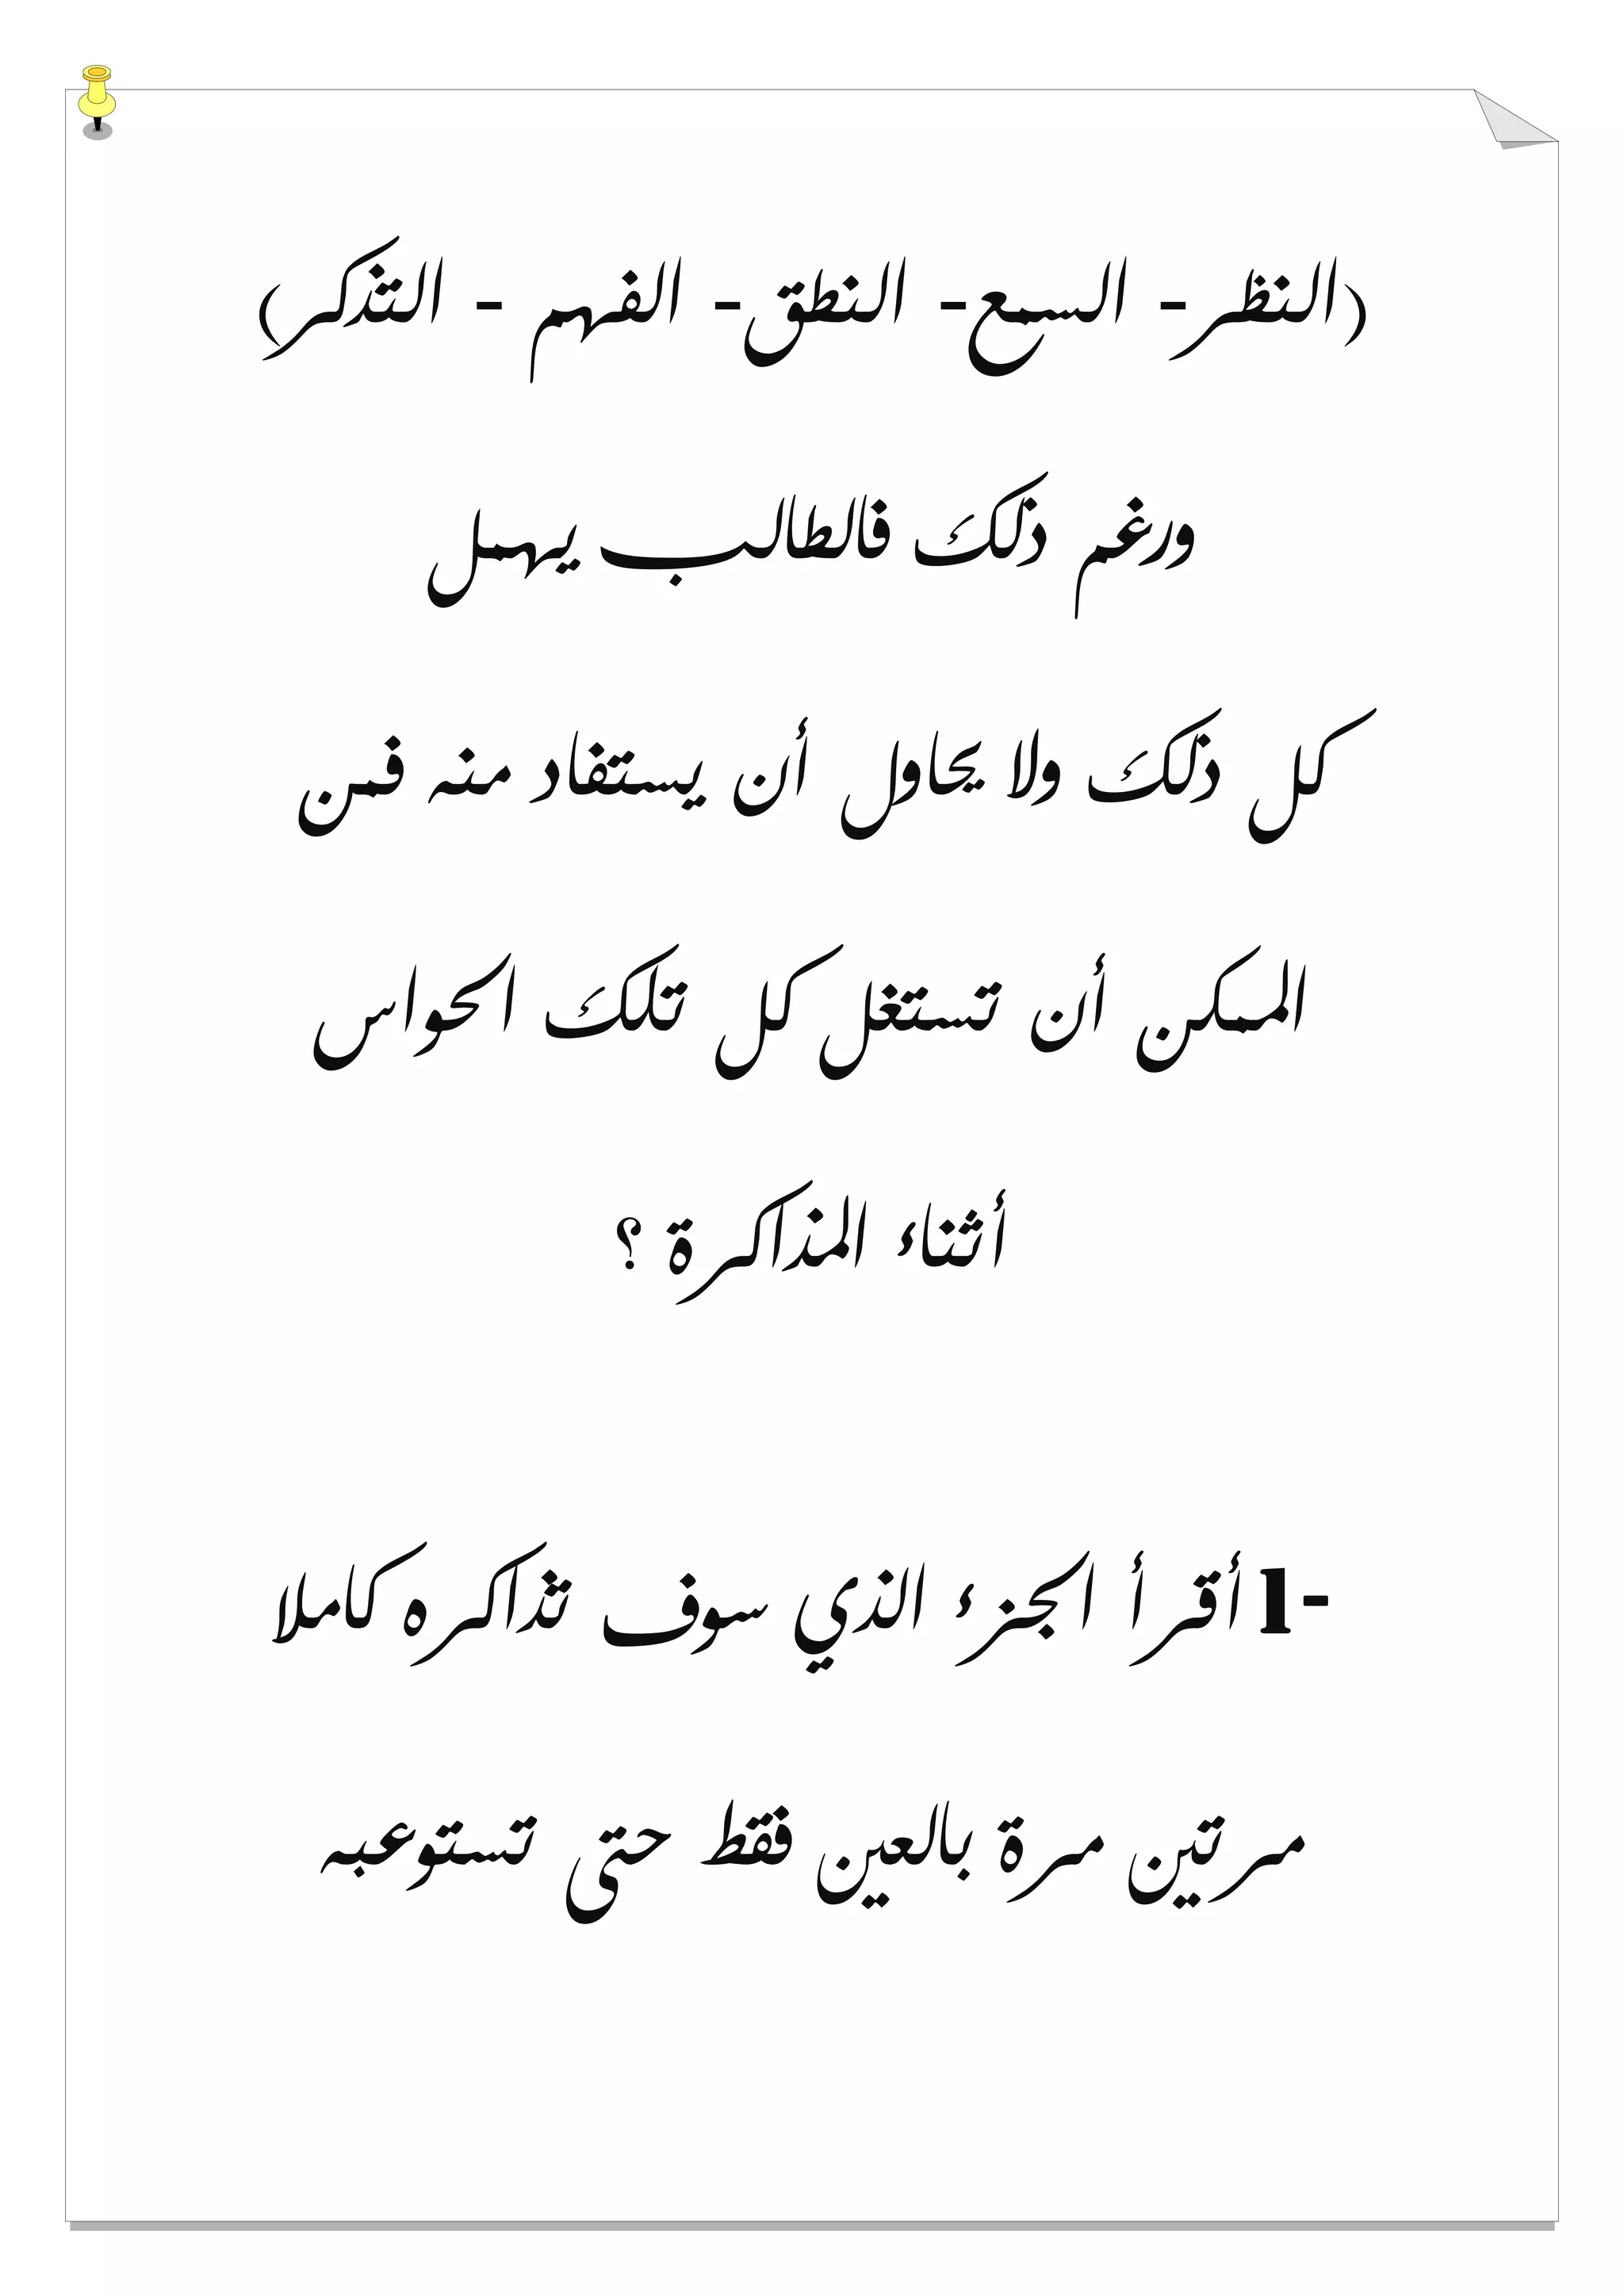 (النظر - السمع - النطق - الفهم - التذكر)
ورغم ذلك فالطالب يهمل
كل ذلك ولا يحاول أن يستفاد منه فمن
الممكن أن تستغل كل تلك الحواس
أثناء المذاكرة ؟
1- أقرأ الجزء الذي سوف تذاكره كاملا
مرتين مرة بالعين فقط حتى تستوعبه